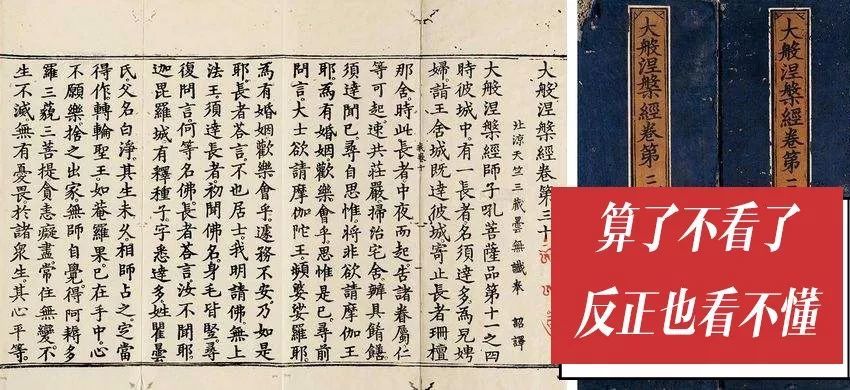 大般涅槃經卷第三十
北涼天竺三藏曇無讖奉 詔譯
大般涅槃經師子吼菩薩品第十一之四
時彼城中。有一長者名須達多。為兒娉
婦詣王舍城。既達彼城寄止長者珊檀
那舍。時此長者中夜而起。告諸眷屬。仁
等可起速共莊嚴。掃治宅舍。辦具餚饍
須達聞已。尋自思惟。將非欲請摩伽王
耶。為有婚姻歡樂會乎。思惟是已。尋前
問言。大士欲請摩伽陀王。頻婆娑羅耶
為有婚姻歡樂會乎。遽務不安。乃如是
耶。長者荅言。不也居士。我明請佛無上
法王。須達長者初聞佛名。身毛皆豎。尋
復問言。何等名佛。長者荅言。汝不聞耶
迦毘羅城有釋種子。字悉達多。姓瞿曇
氏。父名白淨。其生未久相師占之。定當
得作轉輪聖王。如菴羅果。已在手中。心
不願樂捨之出家。無師自覺。得阿耨多
羅三藐三菩提。貪恚癡盡。常住無變。不
生不滅。無有憂畏。於諸衆生。其心平等
大般涅槃經卷第二
大般涅槃經卷第二
算了不看了
反正也看不懂